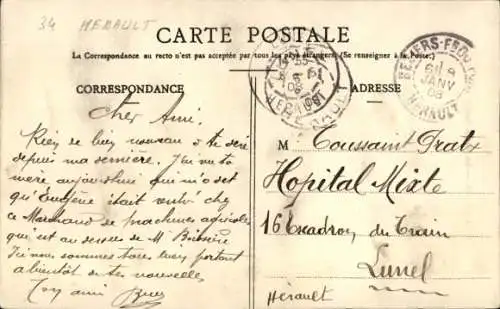 34 HERAULT
CARTE POSTALE
La Correspondance au recto n'est pas acceptée par tous les pays étrangers. (Se renseigner à la Poste.)
CORRESPONDANCE
Cher Ami.
Rien de bien nouveau à te dire
depuis ma dernière. J'ai vu ta
mère aujourd'hui qui m'a dit
qu'Eugène était rentré chez
ce Marchand de machines agricoles
qui est au dessus de Mr
nous sommes tous bien portant
à bientôt de tes nouvelles
Ton ami
HERAULT
BEZIERS
HERAULT
ADRESSE
M Toussaint Pratx
Hopital Mixte
16 Escadron du Train
Lunel
Hérault